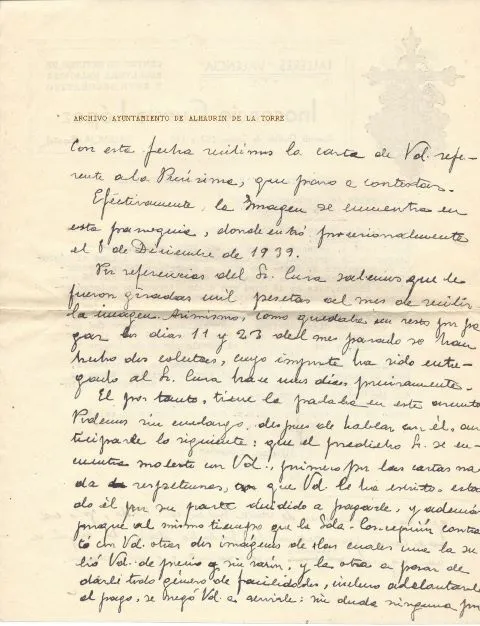 ARCHIVO AYUNTAMIENTO DE ALHAURIN DE LA TORRE
Con esta fecha recibimos la carta de Vd. refe-
rente a la Purísima, que paso a contestar.
Efectivamente, la Imagen se encuentra en
esta parroquia, donde entró procesionalmente
el 8 de Diciembre de 1939.
Por referencias del Sr. Cura sabemos que le
fueron giradas mil pesetas al mes de recibir
la imagen. Asimismo, como quedaba un resto por pa
gar los dias 11 y 23 del mes pasado se han
hecho dos colectas, cuyo importe ha sido entre-
gado al Sr. Cura hace unos dias precisamente.
El por tanto, tiene la palabra en este asunto
Podemos sin embargo, despues de hablar con él, an
ticiparle lo siguiente: que el predicho Sr. se en-
cuentra molesto con Vd., primero por las cartas na
da respetuosas, que Vd. le ha escrito, estan
do él por su parte decidido a pagarle, y además
porque al mismo tiempo que la contra
tó con Vd. otras dos imágenes de las cuales una la su
bió Vd. de precio y sin razón, y la otra a pesar de
darle todo género de facilidades, incluso adelantarle
el pago, se negó Vd. a servirle: sin duda ninguna por